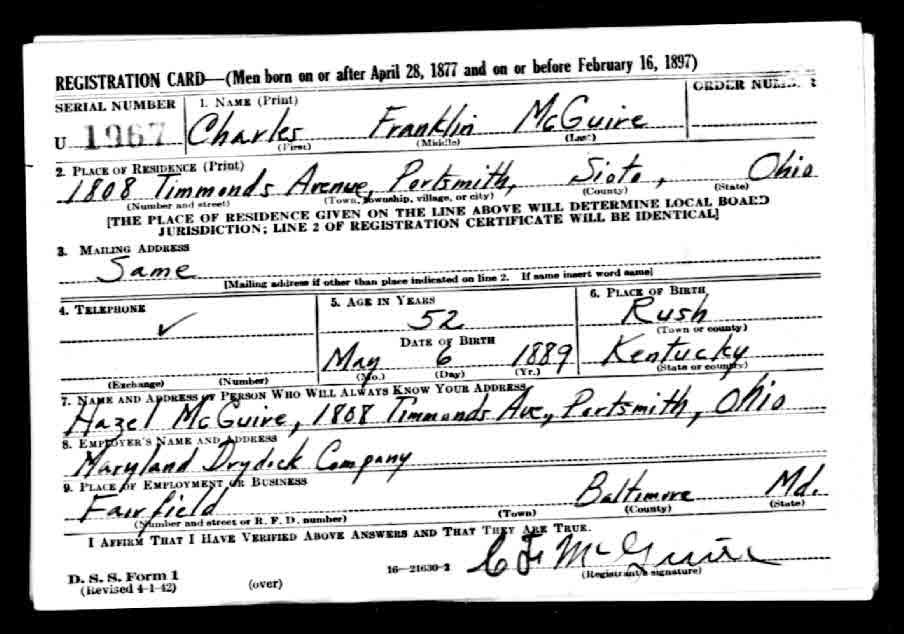 REGISTRATION CARD—(Men born on or after April 28, 1877 and on or before February 16, 1897)
SERIAL NUMBER 1. NAME (Print) ORDER
U 1967 Charles Franklin McGuire
(First) (Middle) (Last)
2. PLACE OF RESIDENCE (Print)
1808 Timmonds Avenue, Portsmith, Sioto, Ohio
(Number and street) (Town, township, village, or city) (County) (State)
[THE PLACE OF RESIDENCE GIVEN ON THE LINE ABOVE WILL DETERMINE LOCAL BOARD
JURISDICTION; LINE 2 OF REGISTRATION CERTIFICATE WILL BE IDENTICAL]
3. MAILING ADDRESS
Same
[Mailing address if other than place indicated on line 2. If same insert word same]
4. TELEPHONE 5. AGE IN YEARS 6. PLACE OF BIRTH
✓ 52 Rush
(Town or county)
DATE OF BIRTH
May 6 1889 Kentucky
(Exchange) (Number) (Mo.) (Day) (Yr.) (State or country)
7. NAME AND ADDRESS OF PERSON WHO WILL ALWAYS KNOW YOUR ADDRESS
Hazel McGuire, 1808 Timmonds Ave, Portsmith, Ohio
8. EMPLOYER'S NAME AND ADDRESS
Maryland Drydock Company
9. PLACE OF EMPLOYMENT OR BUSINESS
Fairfield Baltimore Md.
(Number and street or R. F. D. number) (Town) (County) (State)
I AFFIRM THAT I HAVE VERIFIED ABOVE ANSWERS AND THAT THEY ARE TRUE.
D. S. S. Form 1
(Revised 4-1-42) (over) 16—21630-2 C F McGuire
(Registrant's signature)